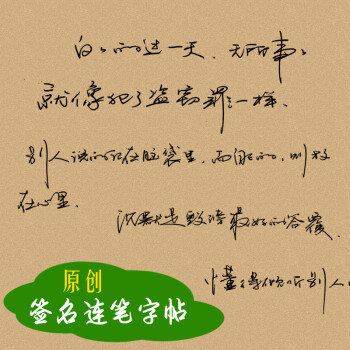 白白的过一天、无所事事
就像犯了盗窃罪一样、
别人说的记在脑袋里，而自己的，则放
在心里。
沉默是毁谤最好的答覆、
懂得倾听别人
原创
签名连笔字帖